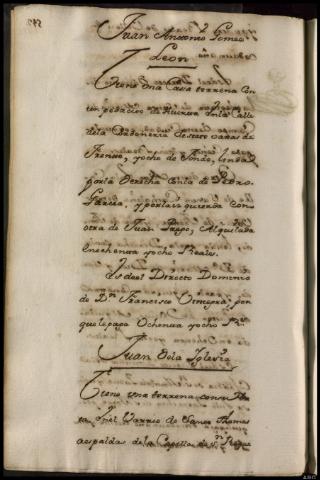 Juan Antonio Gomez
Leon
Tiene una Casa terrena con
un pedacico de Huerto en la Calle
de la Cordoneria de siete varas de
Frente, y ocho de fondo, linda
por la derecha con la de Pedro
Garcia, y por la izquierda con
otra de Juan Crespo, Alquilada
en ochenta y ocho Reales.
Es del Directo Dominio
de Dn. Francisco
que le paga Ochenta y ocho Rs.
Juan de la Iglesia
Tiene una terrena con su
en el Varrio de Santo Thomas
a espaldas de la Capilla de Sn. Roque